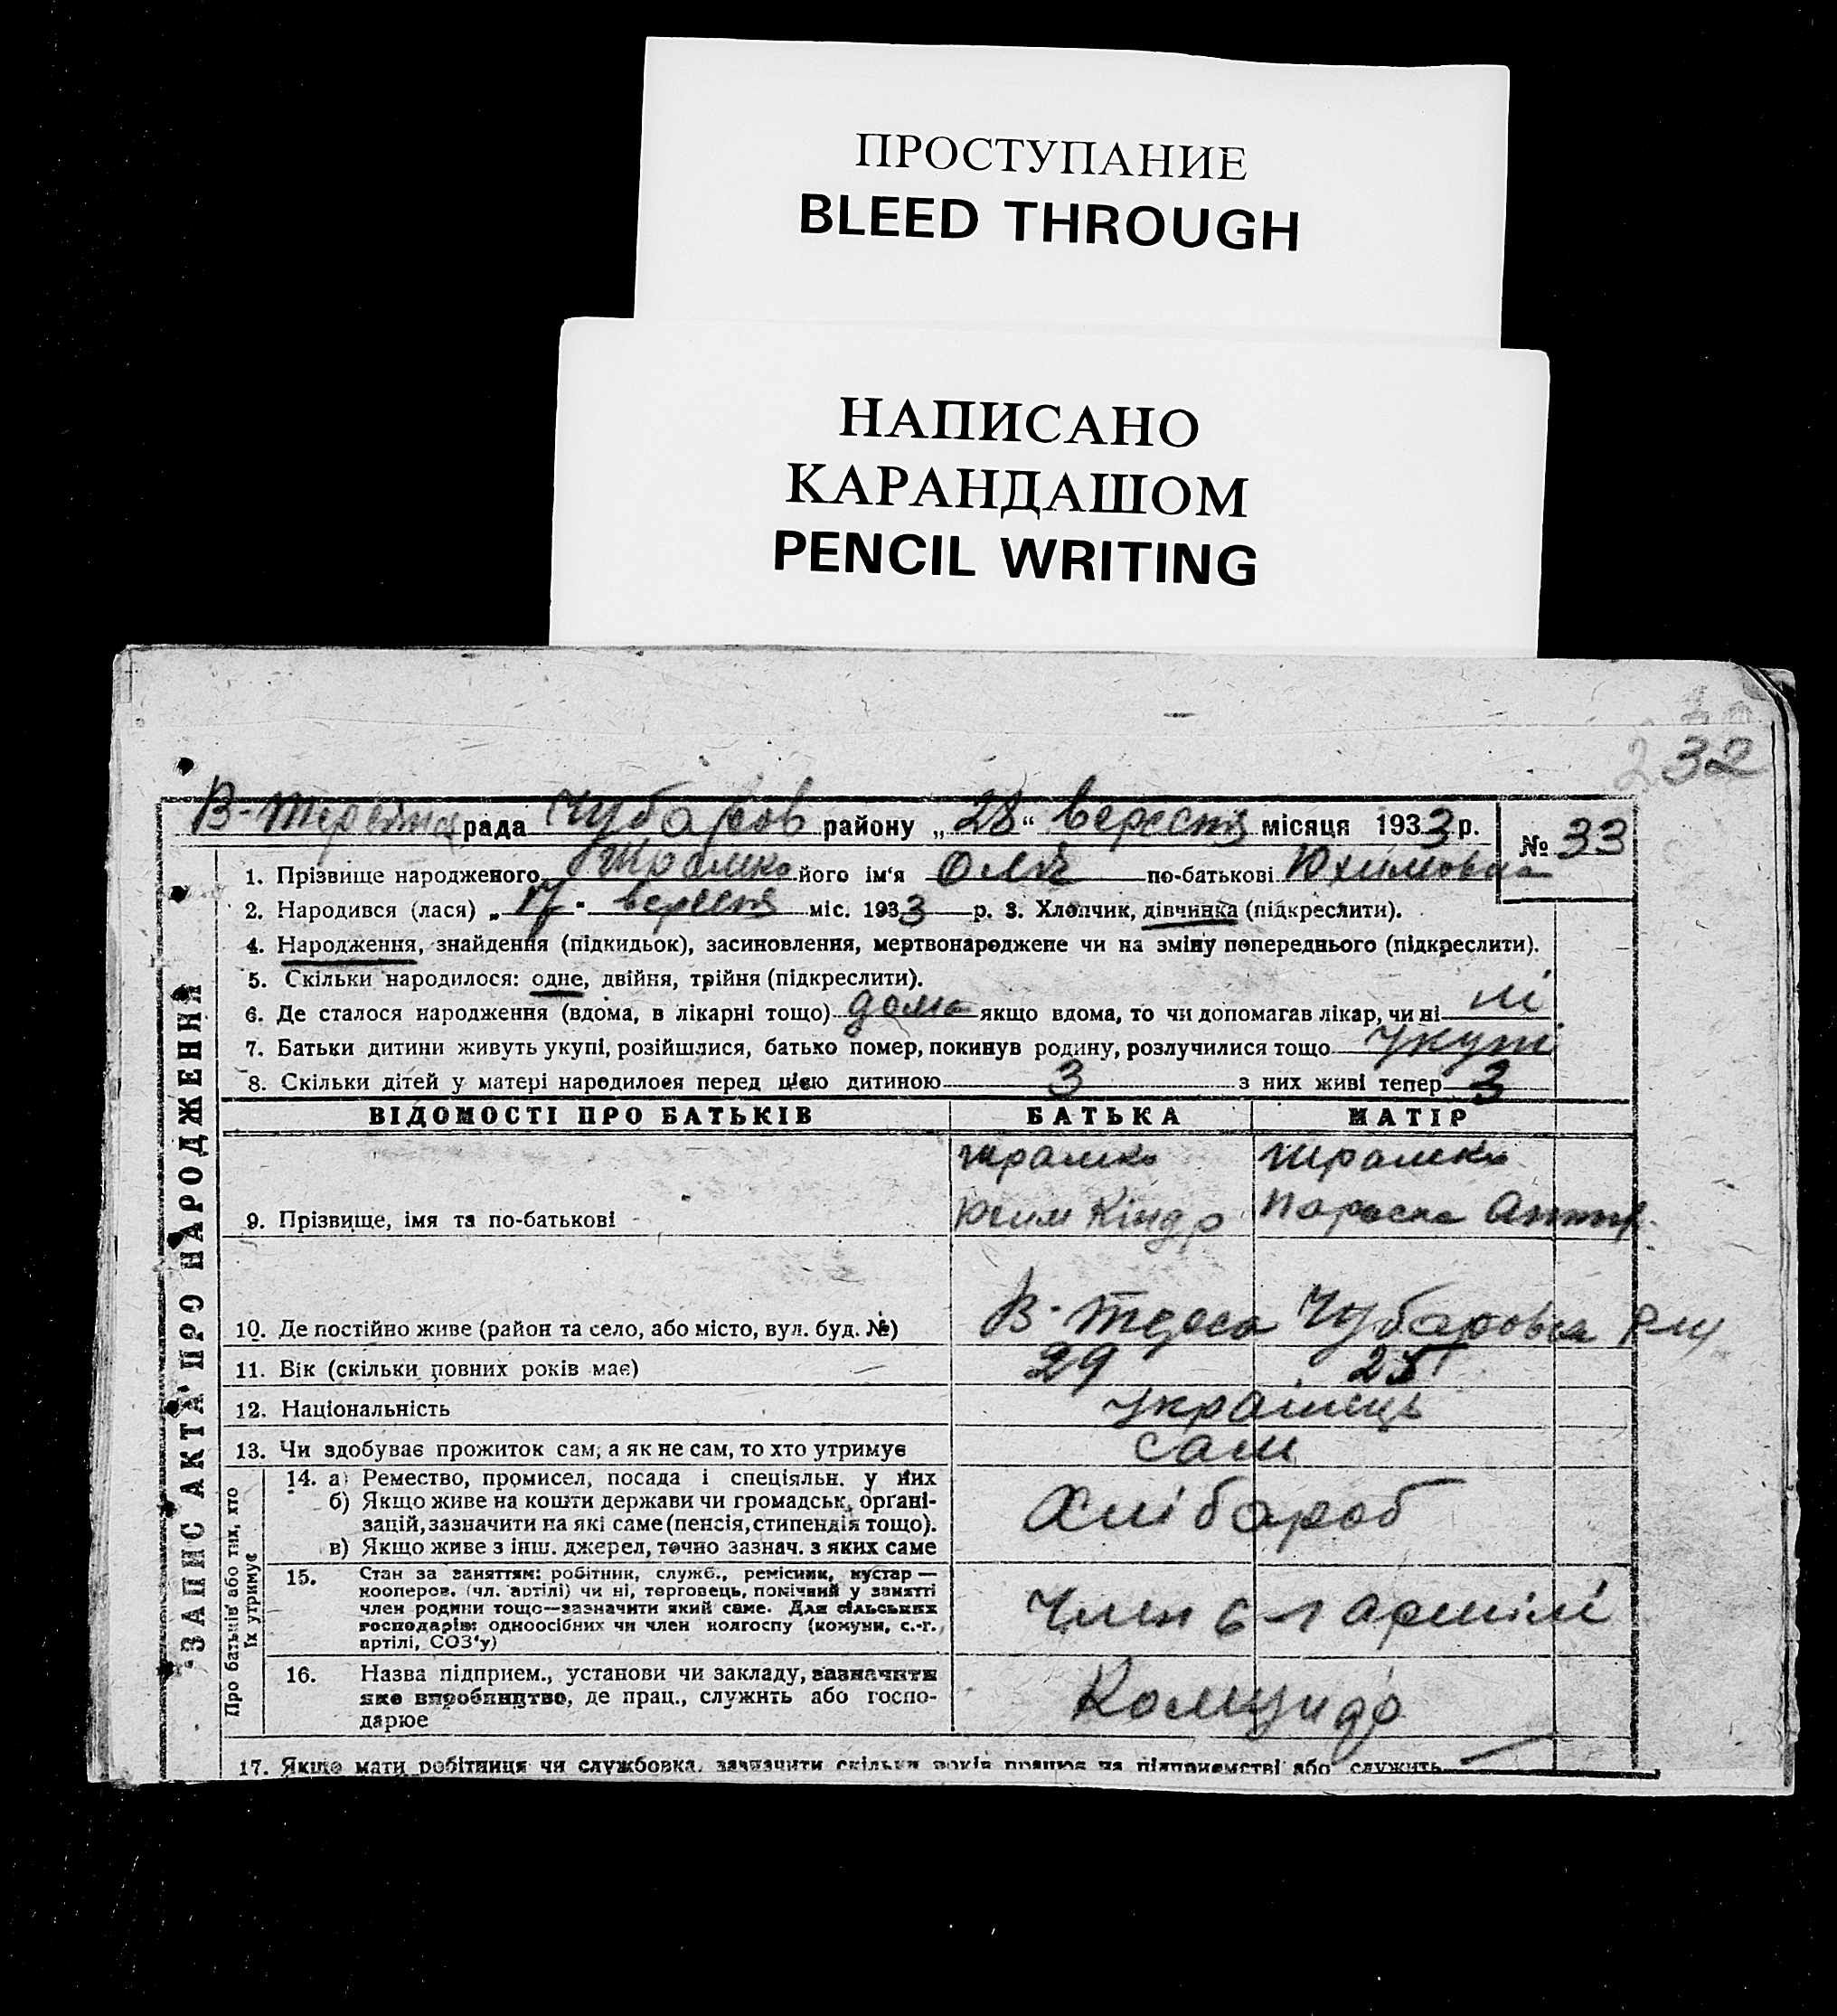 ПРОСТУПАНИЕ
BLEED THROUGH
НАПИСАНО
КАРАНДАШОМ
PENCIL WRITING
32
рада Чубаров району „28“ вересня місяця 1933 р. № 33
1. Прізвище народженого його ім'я Оля по-батькові Юхимовна
2. Народився (лася) „17" вересня міс. 1933 р. 3. Хлопчик, дівчинка (підкреслити).
4. Народження, знайдення (підкидьок), засиновлення, мертвонароджене чи на зміну попереднього (підкреслити).
5. Скільки народилося: одне, двійня, трійня (підкреслити).
6. Де сталося народження (вдома, в лікарні тощо) дома якщо вдома, то чи допомагав лікар, чи ні ні
7. Батьки дитини живуть укупі, розійшлися, батько помер, покинув родину, розлучилися тощо укупі
8. Скільки дітей у матері народилося перед цією дитиною 3 з них живі тепер 3
ЗАПИС АКТА ПРО НАРОДЖЕННЯ
ВІДОМОСТІ ПРО БАТЬКІВ БАТЬКА МАТІР
9. Прізвище, імя та по-батькові Юхим Кіндр Параска
10. Де постійно живе (район та село, або місто, вул. буд. №) В-Тереса Чубаровся
11. Вік (скільки повних років має) 29 25
12. Національність українець
13. Чи здобуває прожиток сам, а як не сам, то хто утримує сам
Про батьків або тих, хто
їх утримує
14. а) Ремество, промисел, посада і спеціяльн. у них
б) Якщо живе на кошти держави чи громадськ. органі-
зацій, зазначити на які саме (пенсія, стипендія тощо).
в) Якщо живе з інш. джерел, точно зазнач. з яких саме
Хлібароб
15. Стан за заняттям: робітник, служб., ремісник, кустар —
кооперов. (чл. артілі) чи ні, торговець, помічний у занятті
член родини тощо—зазначити який саме. Для сільських
господарів: одноосібних чи член колгоспу (комуни, с.-г.
артілі, СОЗ'у)
Член с-г артілі
16. Назва підприєм., установи чи закладу, зазначити
яке виробництво, де прац., служить або госпо-
дарює
17. Якщо мати робітниця чи службовка, зазначити скільки років працює на підприємстві або служить